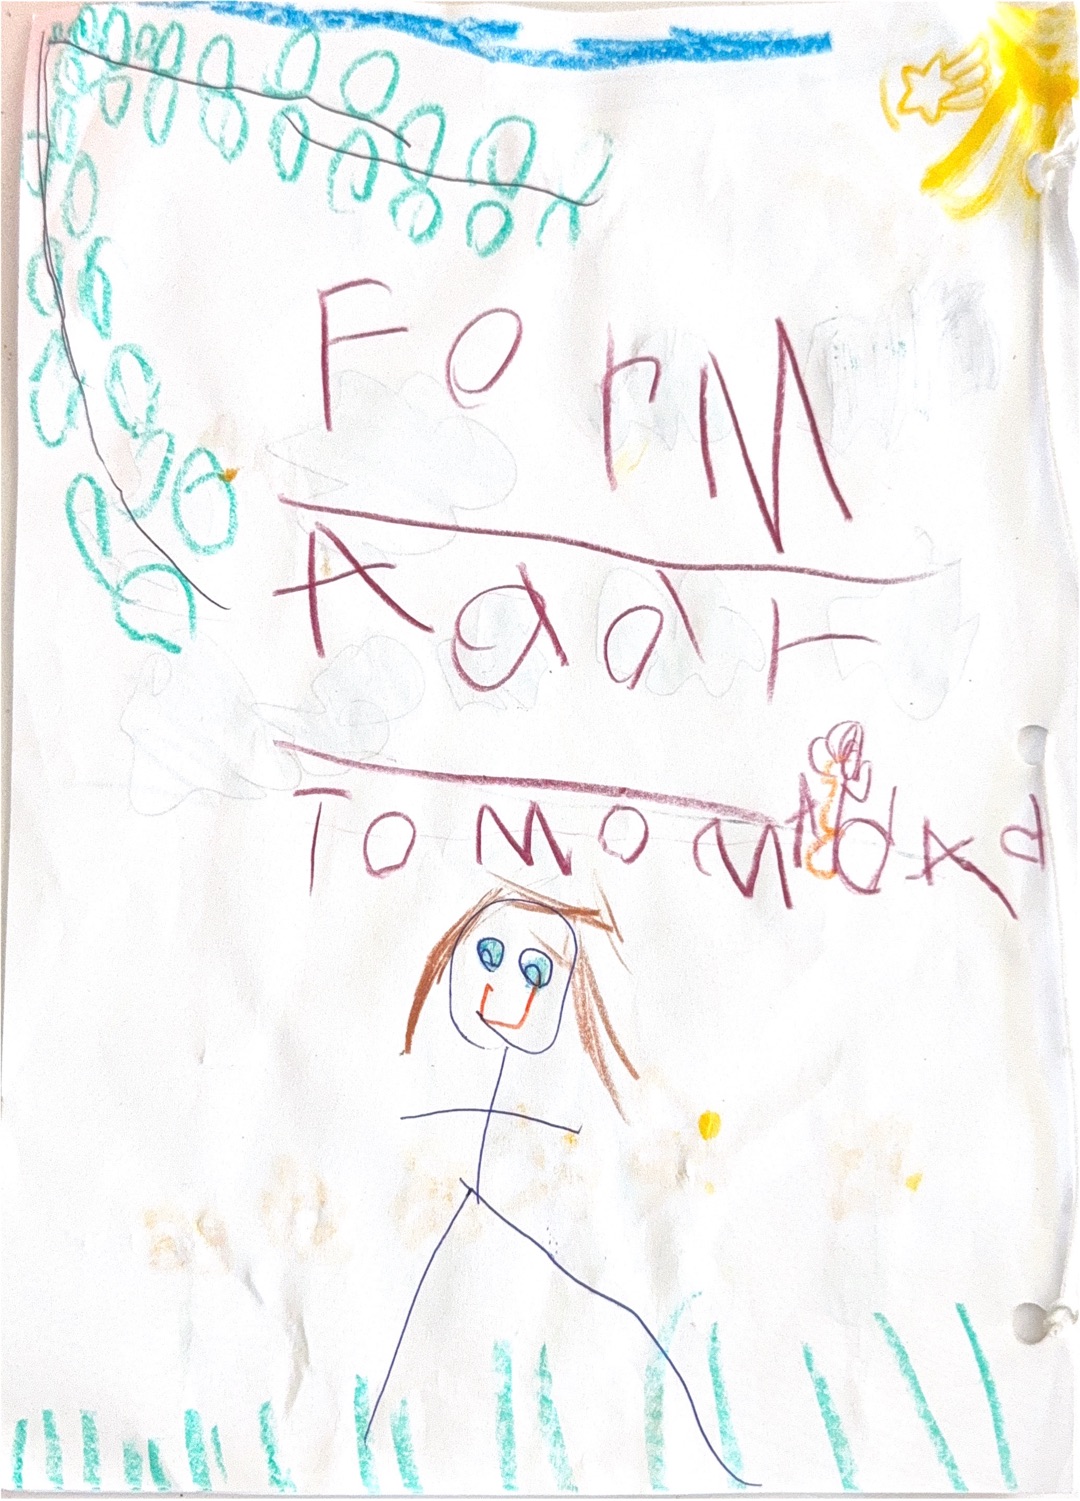 FOrM
Adar
TOMOMAdAd